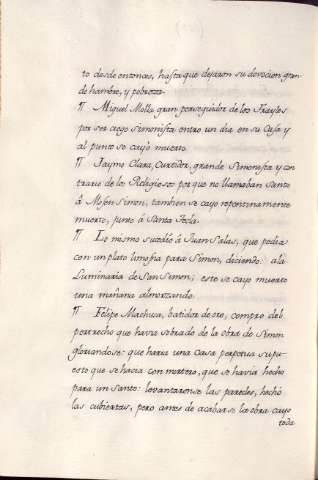 to desde entonces, hasta que dejaron su devocion gran
de hambre, y pobreza.
¶ Miguel Molla gran perseguidor de los Frayles
por ser ciego Simonista entro un dia en su Casa y
al punto se cayò muerto.
¶ Jayme Clara, Curtidor, grande Simonista y con
trario de los Religiosos porque no llamaban Santo
à Mosen Simon; tambien se cayo repentinamente
muerto, junto à Santa Tecla.
¶ Lo mismo sucediò à Juan Salas, que pedia
con un plato limosna para Simon, diciendo: ala
Luminaria de San Simon; este se cayo muerto
una mañana almorzando.
¶ Felipe Machua, batidor de oro, compro del
pertrecho que havia sobrado de la obra de Simon
gloriandose: que haria una casa perpetua supu-
esto que se hacia con matereo, que se havia hecho
para un Santo: levantaronse las paredes, hechò
las cubiertas, pero antes de acabarse la obra cayo
toda